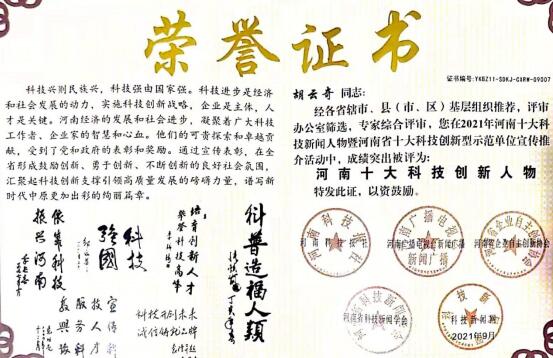 荣誉证书
科技兴则民族兴，科技强由国家强。科技进步是经济
和社会发展的动力，实施科技创新战略，企业是主体，人
才是关键。河南经济的发展和社会进步，凝聚着广大科技
工作者、企业家的智慧和心血。他们的可贵探索和卓越贡
献，受到了党和政府的表彰和奖励。通过宣传表彰，在全
省形成鼓励创新、勇于创新、不断创新的良好社会氛围，
汇聚起科技创新支撑引领高质量发展的磅礴力量，谱写新
时代中原更加出彩的绚丽篇章。
依靠科技
振兴河南
科技
强国
培育创新人才
科普造福人类
宣传科
技人才
服务科
证书编号：YKBZ11-SDKJ-CXRW-09007
胡云奇 同志：
经各省辖市、县（市、区）基层组织推荐，评审
办公室筛选，专家综合评审，您在2021年河南十大科
技新闻人物暨河南省十大科技创新型示范单位宣传推
介活动中，成绩突出被评为：
河南十大科技创新人物
特发此证，以资鼓励。
河南科技报社
河南广播电视台新闻广播
河南省企业自主创新协会
河南省科技新闻学会
科技新闻网
2021年9月